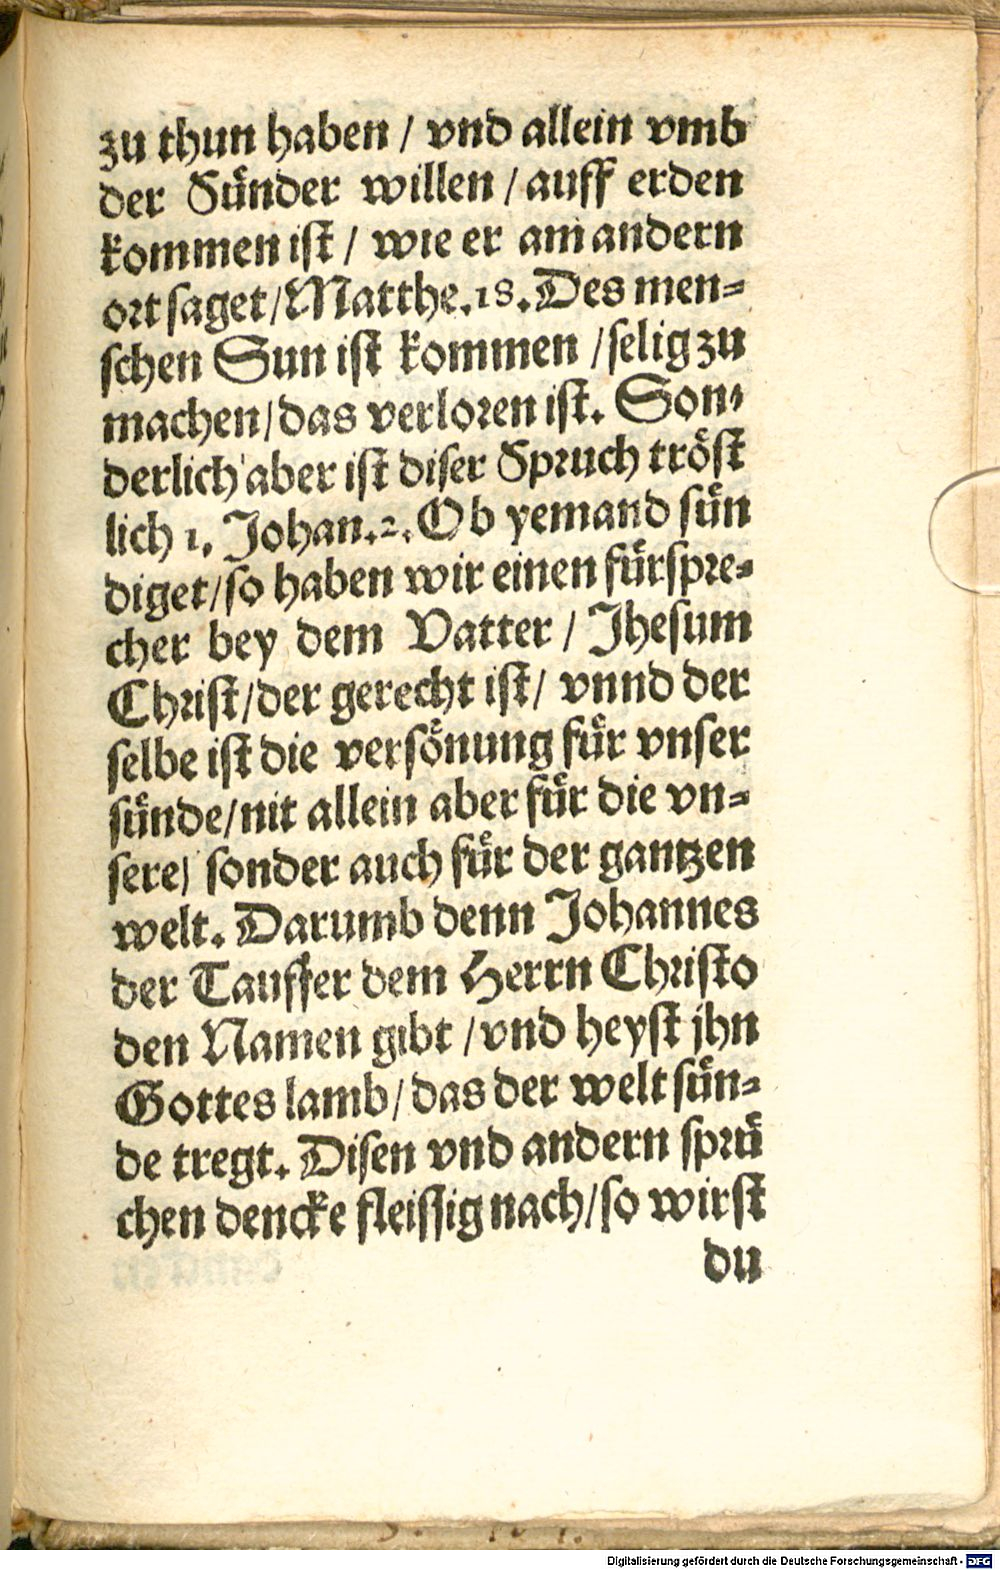 zu thun haben / vnd allein vmb
der Sünder willen / auff erden
kommen ist / wie er am andern
ort saget / Matthe. 18. Des men=
schen Sun ist kommen / selig zu
machen / das verloren ist. Son=
derlich aber ist diser Spruch tröst
lich 1. Johan. 2. Ob yemand sün
diget / so haben wir einen fürspre=
cher bey dem Vatter / Jhesum
Christ / der gerecht ist / vnnd der
selbe ist die versönung für vnser
sünde / nit allein aber für die vn=
sere / sonder auch für der gantzen
welt. Darumb denn Johannes
der Tauffer dem Herrn Christo
den Namen gibt / vnd heyst jhn
Gottes lamb / das der welt sün=
de tregt. Disen vnd andern sprü
chen dencke fleissig nach / so wirst
du
Digitalisierung gefördert durch die Deutsche Forschungsgemeinschaft - DFG